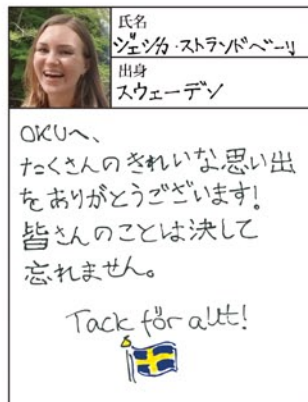 氏名
ジェシカ・ストランドベーリ
出身
スウェーデン
OKUへ、
たくさんのきれいな思い出
をありがとうございます!
皆さんのことは決して
忘れません。
Tack för allt!